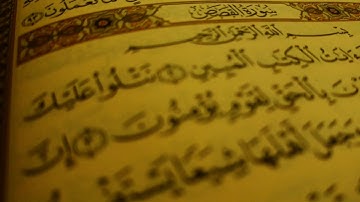 تَعْمَلُونَ
سُورَةُ القَصَصِ
بِسْمِ اللَّهِ الرَّحْمَٰنِ الرَّحِيمِ
ءَايَٰتُ ٱلْكِتَٰبِ ٱلْمُبِينِ ٢ نَتْلُوا۟ عَلَيْكَ
بِٱلْحَقِّ لِقَوْمٍ يُؤْمِنُونَ ٣ إِنَّ
وَجَعَلَ أَهْلَهَا شِيَعًا